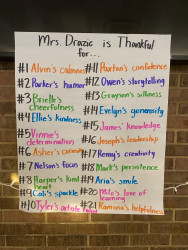 Mrs. Drazic is Thankful
for...
#1 Alvin's calmness
#2 Parker's humor
#3 Brielle's
cheerfulness
#4 Ellie's kindness
#5 Vinnie's
determination
#6 Asher's
#7 Nelson's focus
#8 Harper's kind
heart
#9 Cali's sparkle
#10 Tyler's artistic
#11 Paxton's confidence
#12 Owen's storytelling
#13 Grayson's silliness
#14 Evelyn's generosity
#15 James' knowledge
#16 Joseph's leadership
#17 Remy's creativity
#18 Mark's persistence
#19 Aria's smile
#20 Milo's love of
learning
#21 Ramona's helpfulness